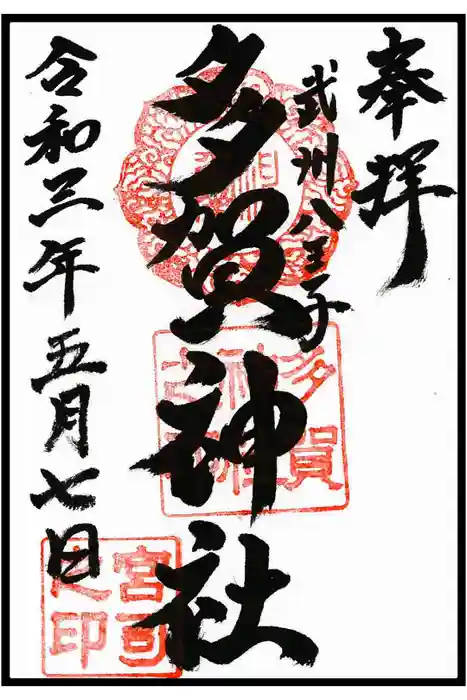 奉拝
武州八王子
多賀神社
令和三年五月七日
多賀
神社
宮司
之印